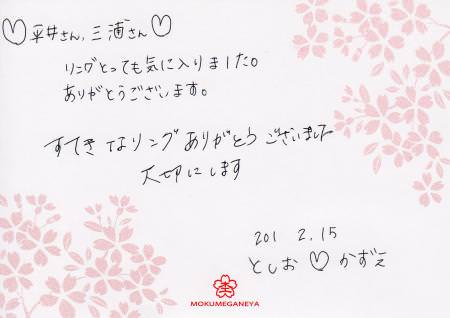 ♡平井さん,三浦さん♡
リングとっても気に入りました。
ありがとうございます。
すてきなリングありがとうございました
大切にします
201 2.15
としお♡かずえ
MOKUMEGANEYA